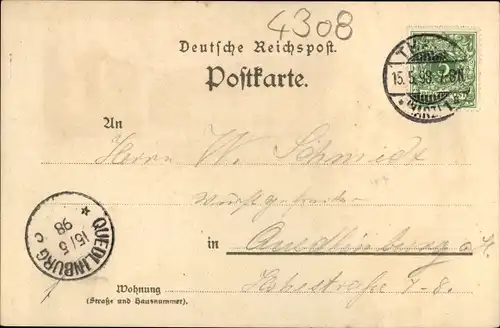 4308
Deutsche Reichspost.
Postkarte.
15.5.98. 7-8N
*(HARZ) 1*
An
Herrn W. Schmidt
in Quedlinburg a/H.
QUEDLINBURG
15/5
98
C
Wohnung
(Straße und Hausnummer).
7-8.